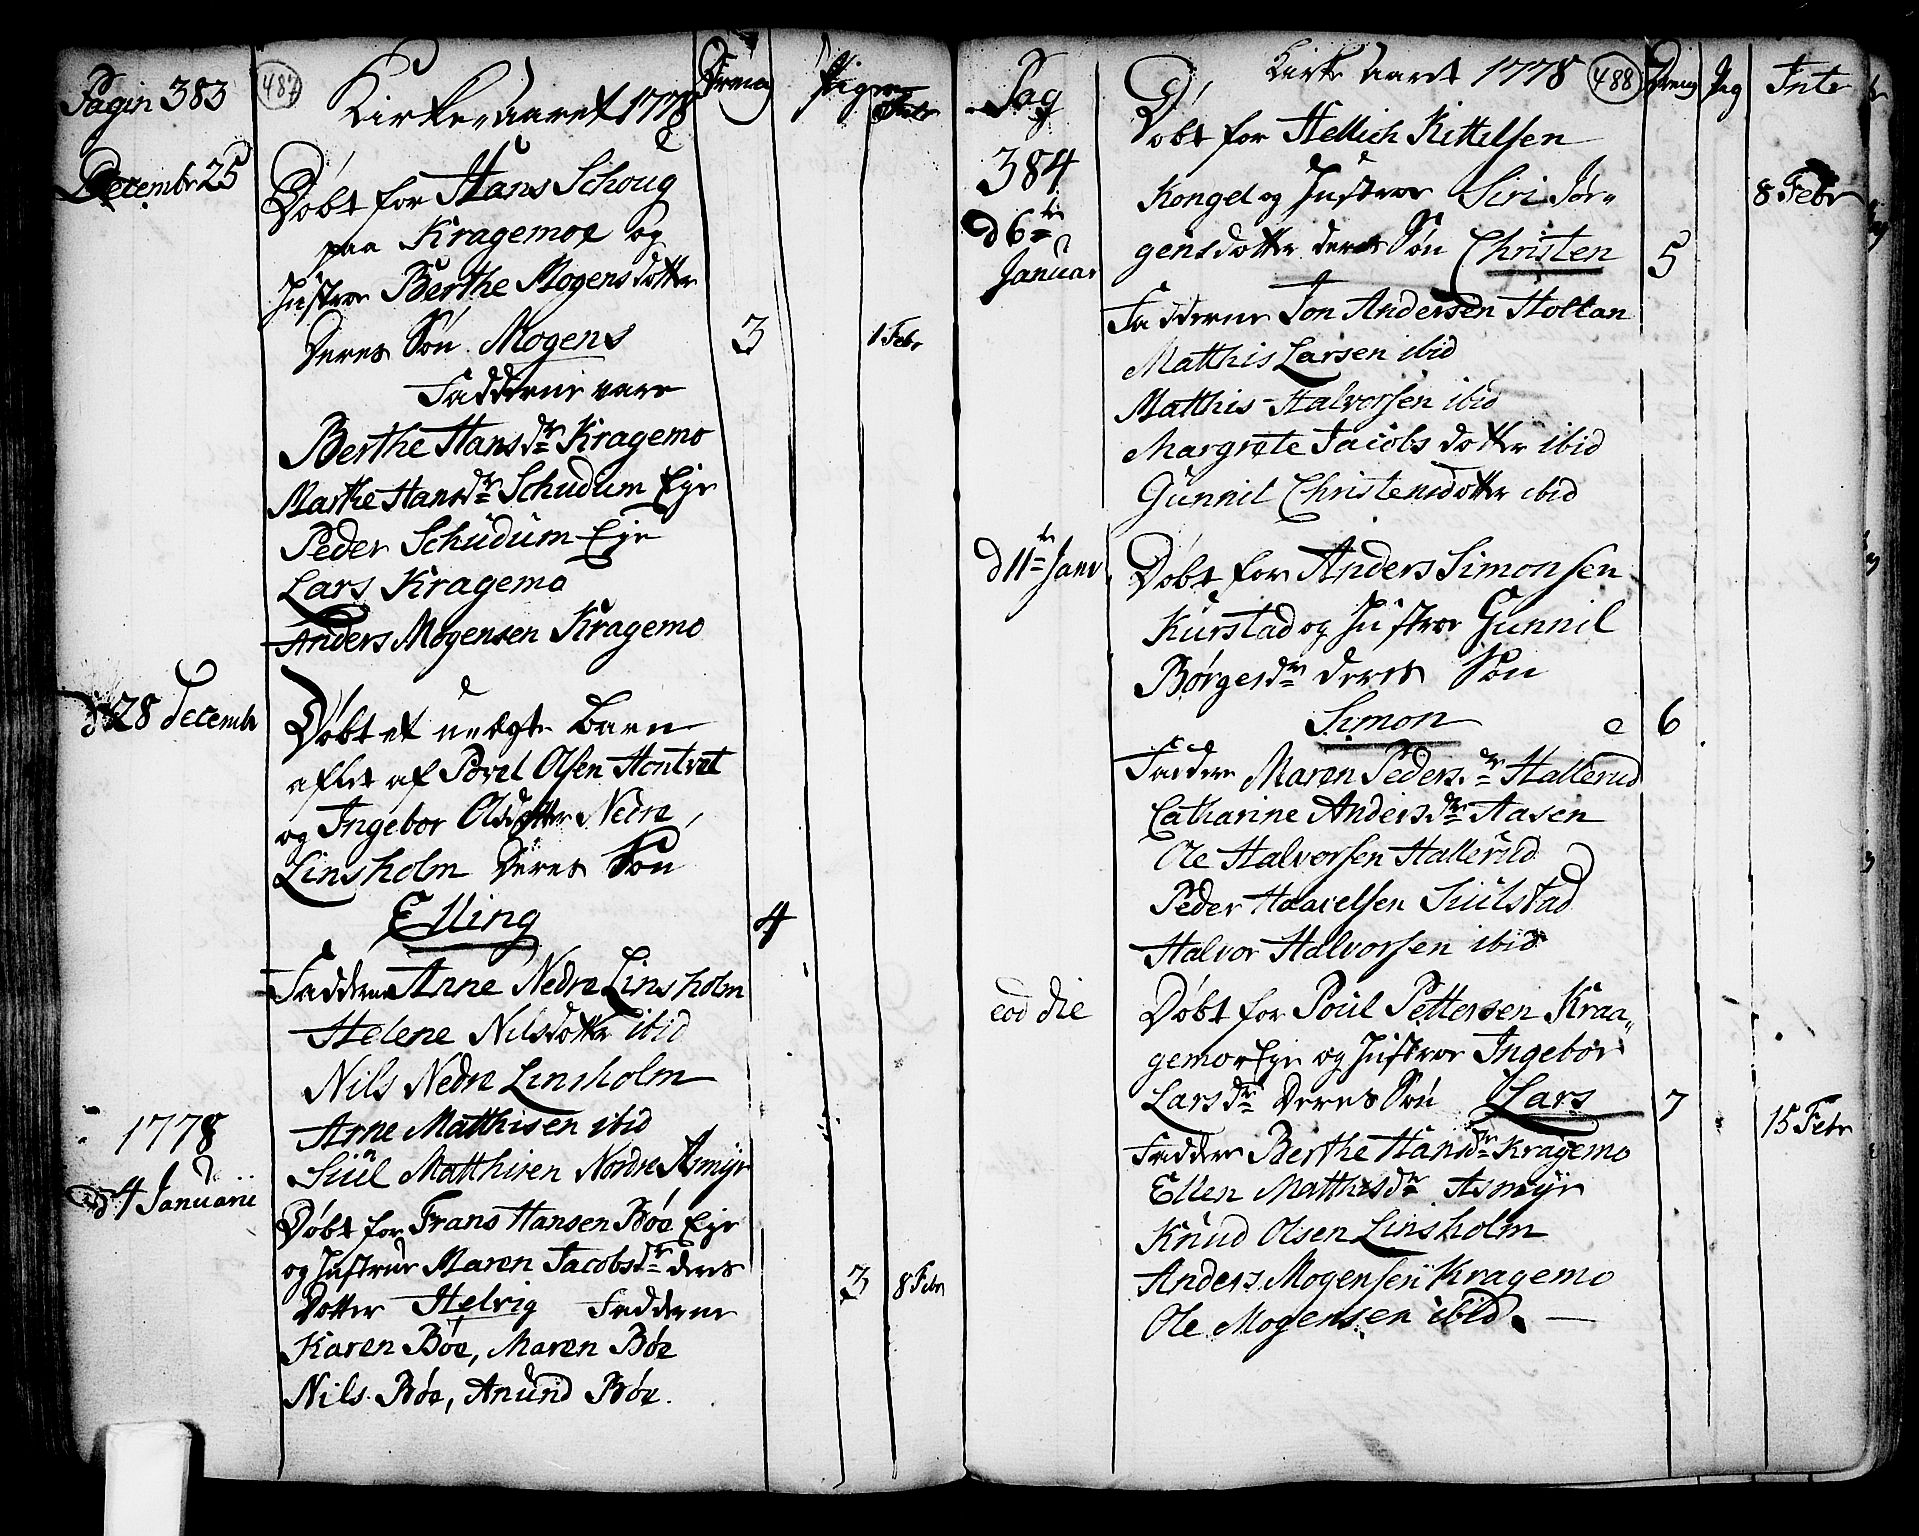 Pagin 383
487
Kirke-aaret 1778
Dreng
Pigen
Intr
Decembr 25
Døbt for Hans Schoug
paa Kragemoe og
Hustroe Berthe Mogensdotter
Deres Søn Mogens
3
1 Febr
Fadderne vare
Berthe Hansdr Kragemo
Marthe Hansdr Schudum Eje
Peder Schudum Eje
Lars Kragemo
Anders Mogensen Kragemo
d 28 Decembr
Døbt et uægte Barn
aflet af Povel Olsen Hontvet
og Ingebor Olsdotter Nedre
Linsholm Deres Søn
Elling
4
Fadderne Anne Nedre Linsholm
Helene Nilsdotter ibid
Nils Nedre Linsholm
Arne Matthisen ibid
Juul Matthisen Nordre Asmyr
1778
d 4 Januarii
Døbt for Frans Hansen Bøe Eje
og Hustrue Maren Jacobsdr deres
Dotter Helvig Fadderne
3
8 Febr
Karen Bøe, Maren Bøe
Nils Bøe, Anund Bøe.
Pag
384
Kirke Aaret 1778
488
Dreng
Pig
Intr
d 6te
Januar
Døbt for Hellich Kittelsen
Kongel og Hustroe Siri Jør-
gensdotter deres Søn Christen
5
8 Febr
Fadderne Jon Andersen Holtan
Matthis Larsen ibid
Matthis Halvorsen ibid
Margrete Jacobsdotter ibid
Gunnil Christensdotter ibid
d 11te Janv
Døbt for Anders Simonsen
Kurstad og Hustroe Gunnil
Børgesdr deres Søn
Simon
6
Faddere Maren Pedersdr Hallerud
Catharine Andersdr Aasen
Ole Halvorsen Hallerud
Peder Haavelsen Juulstad
Halvor Halvorsen ibid
eod die
Døbt for Poul Pettersen Kraa-
gemoe Eje og Hustroe Ingebor
Larsdr Deres Søn Lars
7
15 Febr
Faddere Berthe Hansdr Kragemo
Ellen Matthisdr Asmyr
Knud Olsen Linsholm
Anders Mogensen Kragemo
Ole Mogensen ibid.